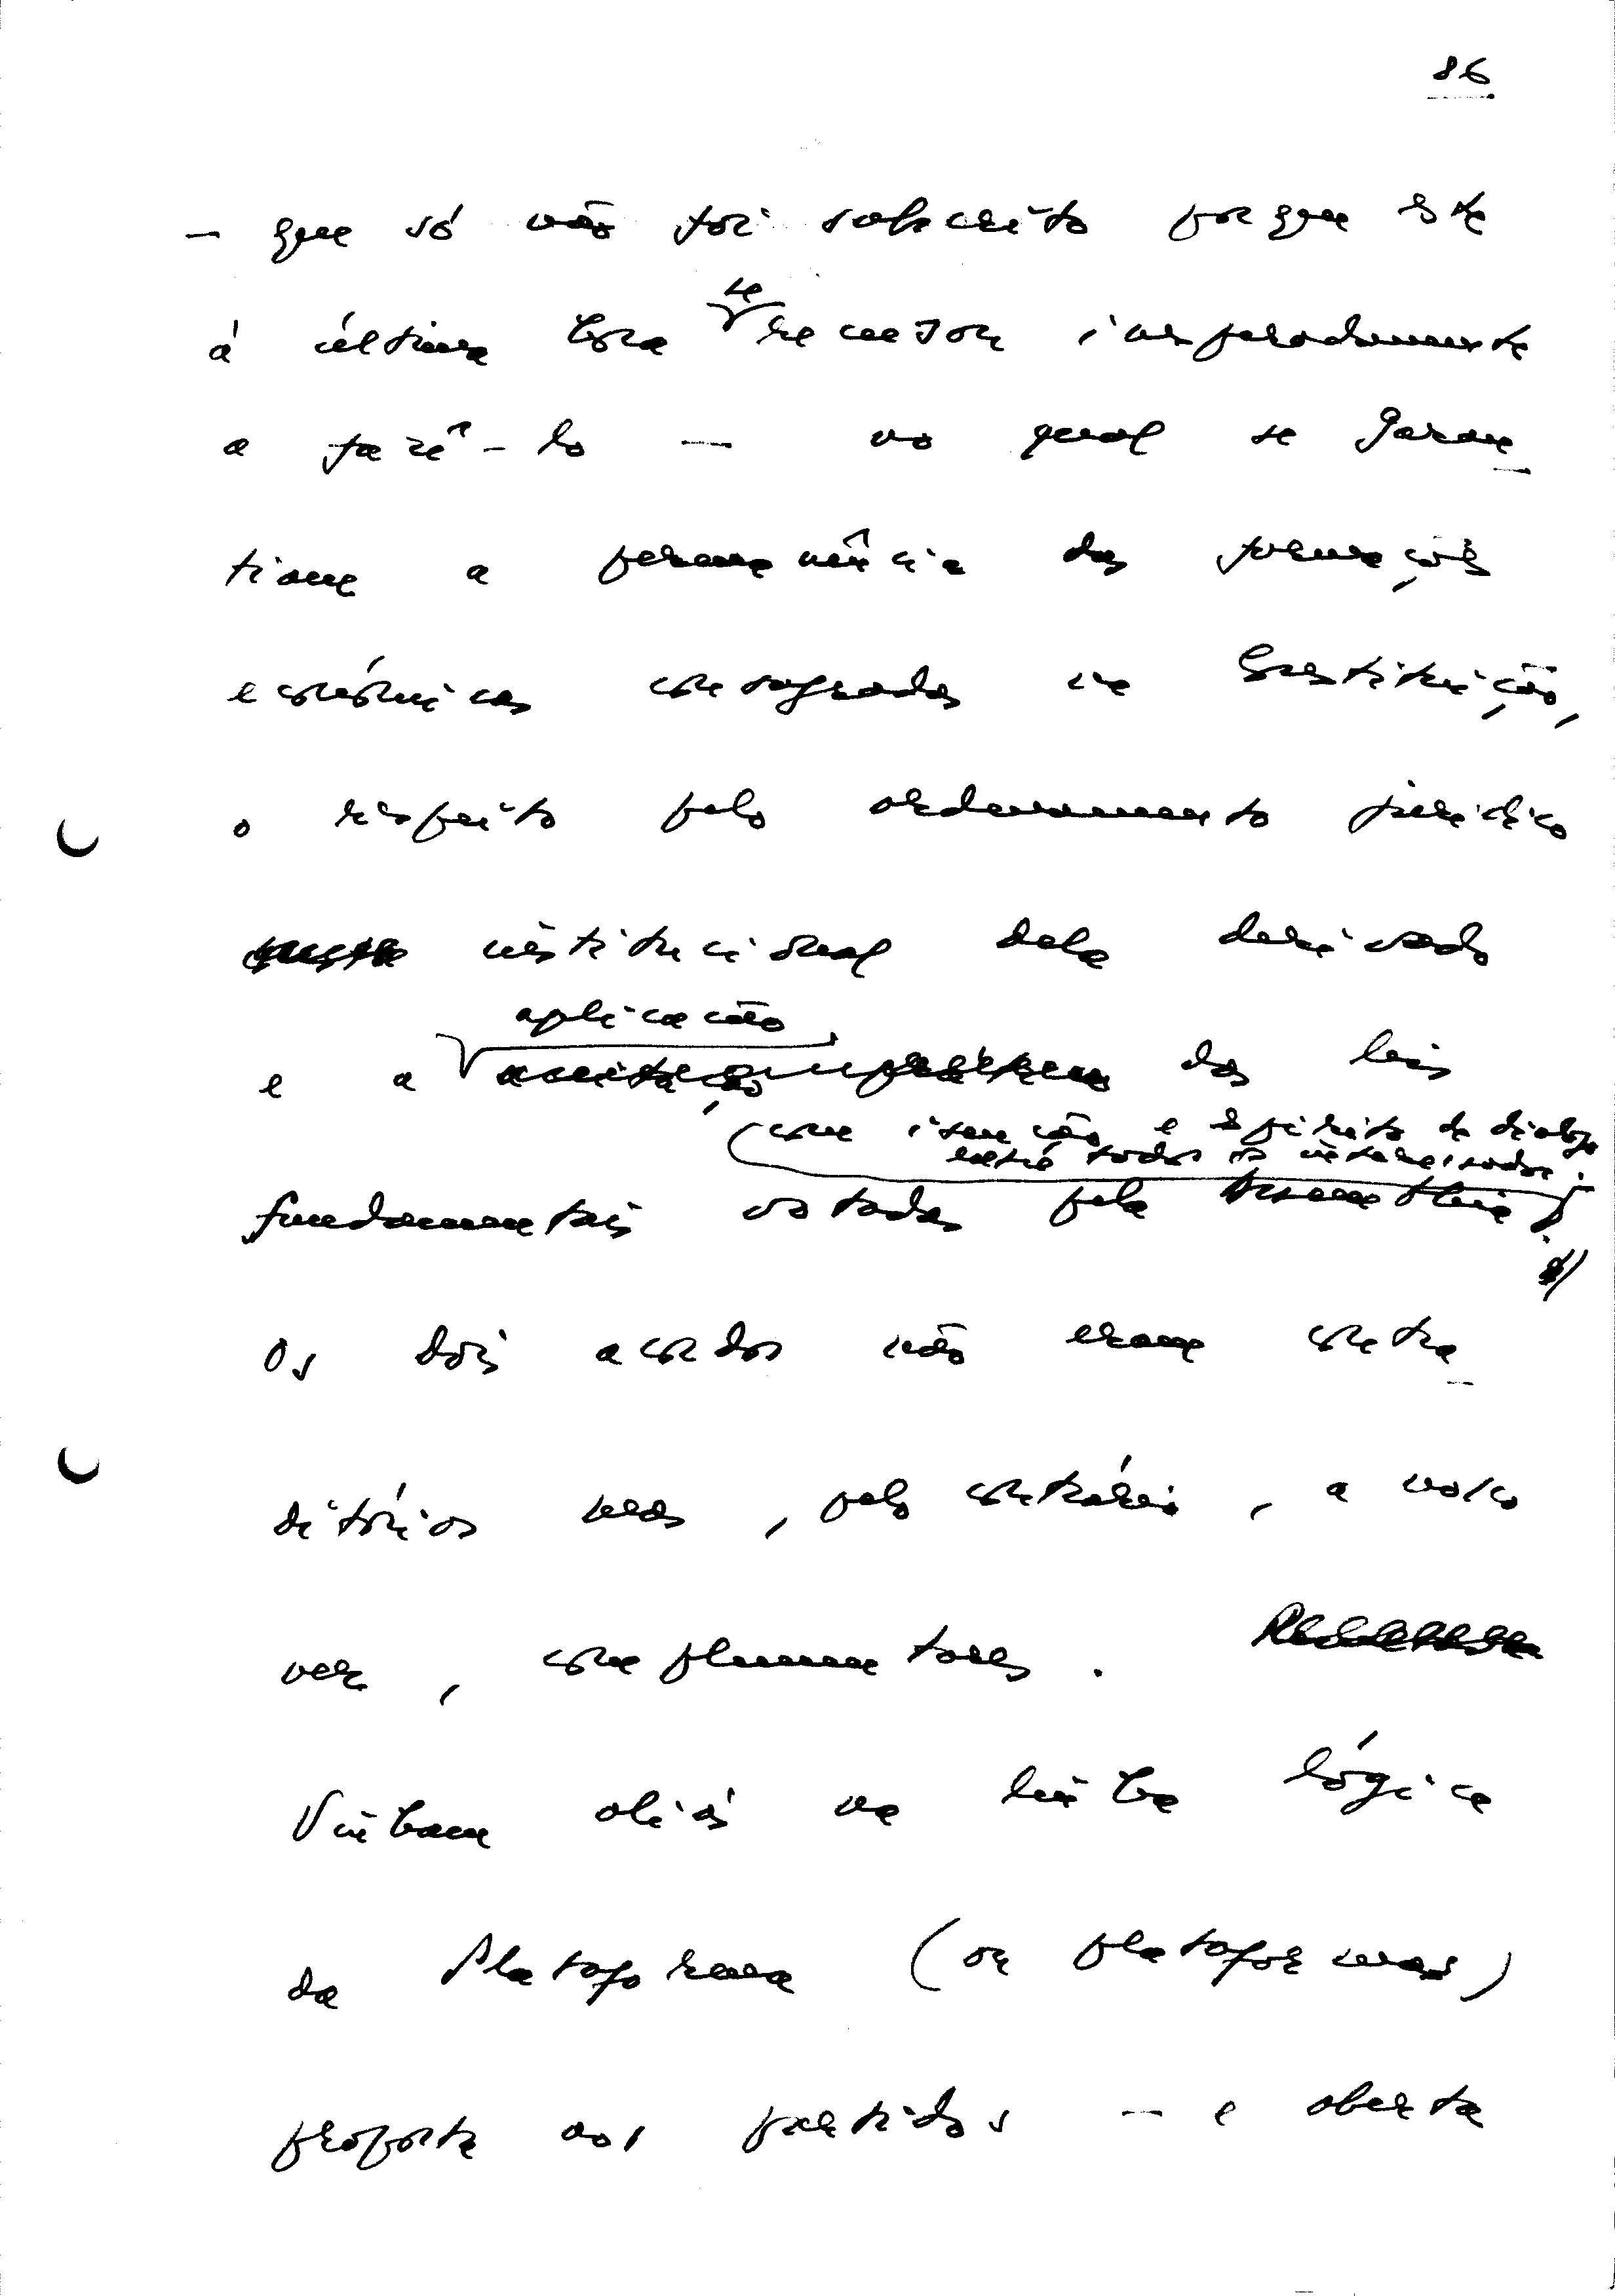 86
— que só não foi subscrito porque este
à última hora se recusou inesperadamente
a fazê-lo — no qual se garan-
tiam a permanência das formações
económicas consagradas na Constituição,
o respeito pelo ordenamento jurídico
institucional dela derivado
aplicação
e a aceitação das leis
com isenção e espírito de diálogo
entre todos os interessados.
fundamentais votadas pela Assembleia
Os dois acordos não eram contra-
ditórios mas, pelo contrário, a nosso
ver, complementares.
Vinham aliás na linha lógica
da Plataforma (ou plataformas)
proposta aos partidos — e aberta